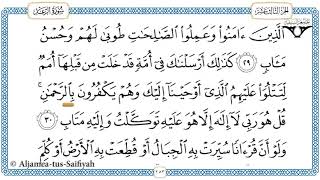 سورة الرعد
الجزء الثالث عشر
الَّذِينَ ءَامَنُوا۟ وَعَمِلُوا۟ الصَّـٰلِحَـٰتِ طُوبَىٰ لَهُمْ وَحُسْنُ
مَـَٔابٍ ٢٩ كَذَٰلِكَ أَرْسَلْنَـٰكَ فِىٓ أُمَّةٍ قَدْ خَلَتْ مِن قَبْلِهَآ أُمَمٌ
لِّتَتْلُوَا۟ عَلَيْهِمُ الَّذِىٓ أَوْحَيْنَآ إِلَيْكَ وَهُمْ يَكْفُرُونَ بِالرَّحْمَـٰنِ
قُلْ هُوَ رَبِّى لَآ إِلَـٰهَ إِلَّا هُوَ عَلَيْهِ تَوَكَّلْتُ وَإِلَيْهِ مَتَابِ ٣٠
وَلَوْ أَنَّ قُرْءَانًا سُيِّرَتْ بِهِ الْجِبَالُ أَوْ قُطِّعَتْ بِهِ الْأَرْضُ أَوْ كُلِّمَ
© Aljamea-tus-Saifiyah